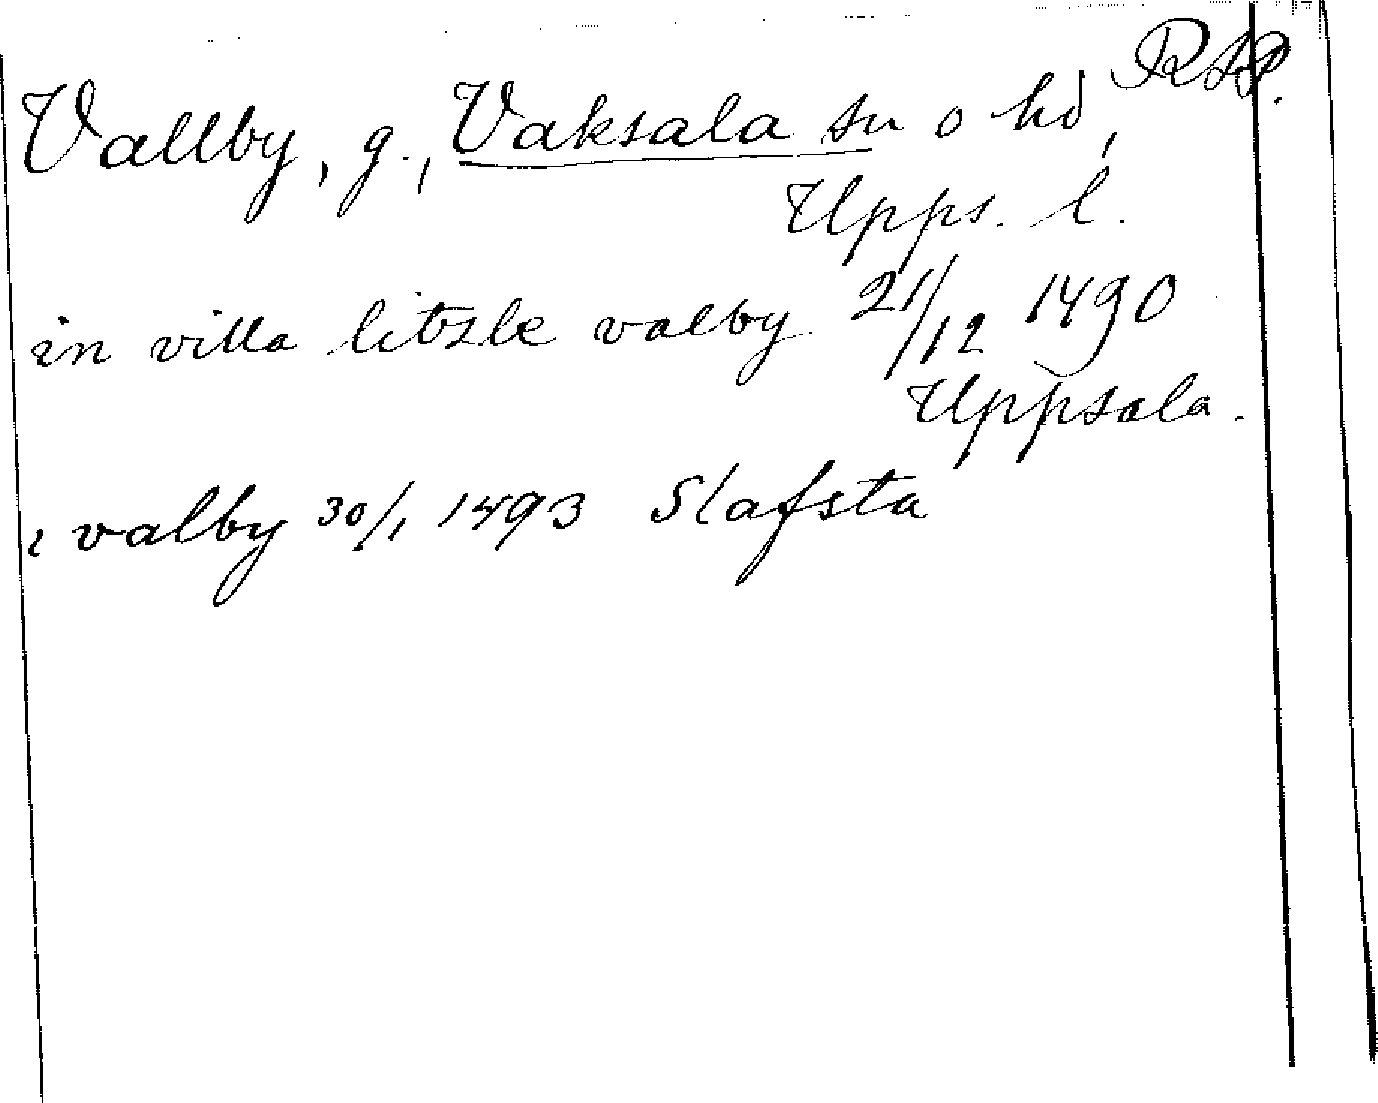 RAP.
Vallby, g., Vaksala sn o hd,
Upps. l.
in villa litzle valby 21/12 1490
Uppsala.
i valby 30/1 1493 Slafsta